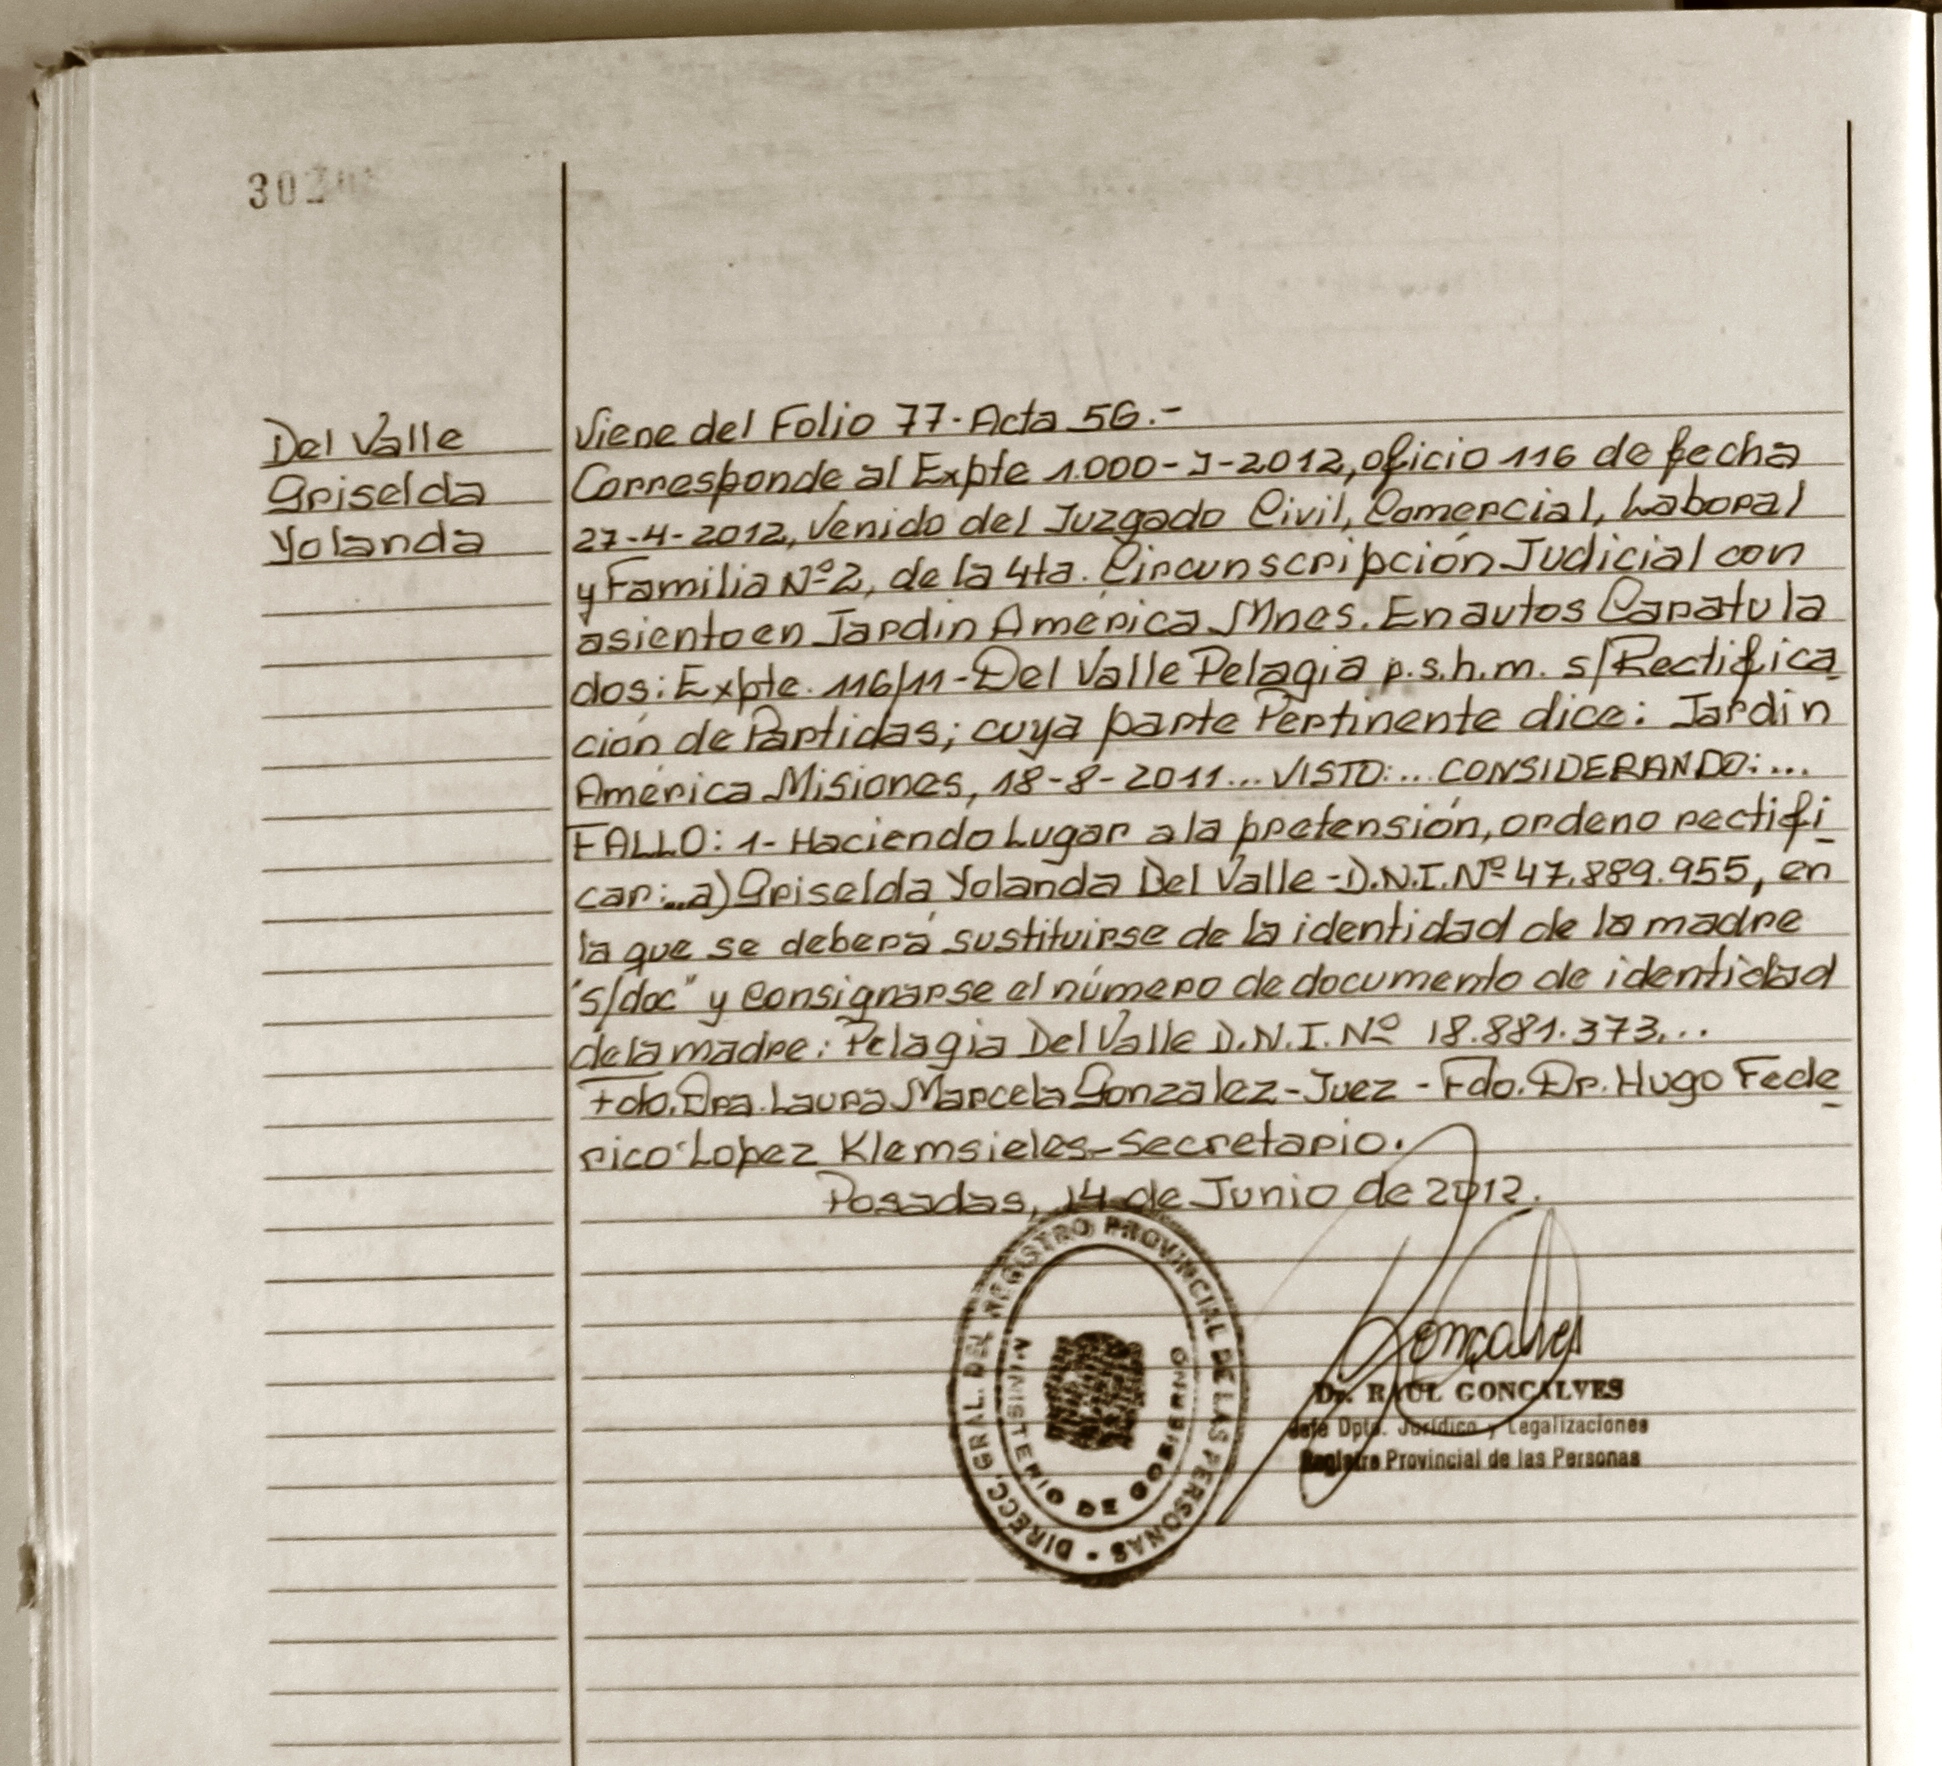 302
Del Valle
Griselda
Yolanda
Viene del Folio 77. Acta 56.-
Corresponde al Expte 1.000-J-2012, oficio 116 de fecha
27-4-2012, Venido del Juzgado Civil, Comercial, Laboral
y Familia Nº 2, de la 4ta. Circunscripción Judicial con
asiento en Jardín América Mnes. En autos Caratula
dos: Expte. 116/11-Del Valle Pelagia p.s.h.m. s/Rectifica
ción de Partidas; cuya parte Pertinente dice: Jardin
América Misiones, 18-8-2011... VISTO:... CONSIDERANDO:...
FALLO: 1- Haciendo Lugar a la pretensión, ordeno rectifi
car:...a) Griselda Yolanda Del Valle-D.N.I. Nº 47.889.955, en
la que se deberá sustituirse de la identidad de la madre
"s/doc" y consignarse el número de documento de identidad
de la madre: Pelagia Del Valle D.N.I. Nº 18.881.373...
Fdo. Dra. Laura Marcela Gonzalez-Juez - Fdo. Dr. Hugo Fede
rico Lopez Klemsieles-Secretario.
Posadas, 14 de Junio de 2012.
DIRECC. GRAL. DEL REGISTRO PROVINCIAL DE LAS PERSONAS -
MINISTERIO DE GOBIERNO
Gonçalves
Dr. RAUL GONCALVES
Jefe Dpto. Jurídico y Legalizaciones
Registro Provincial de las Personas